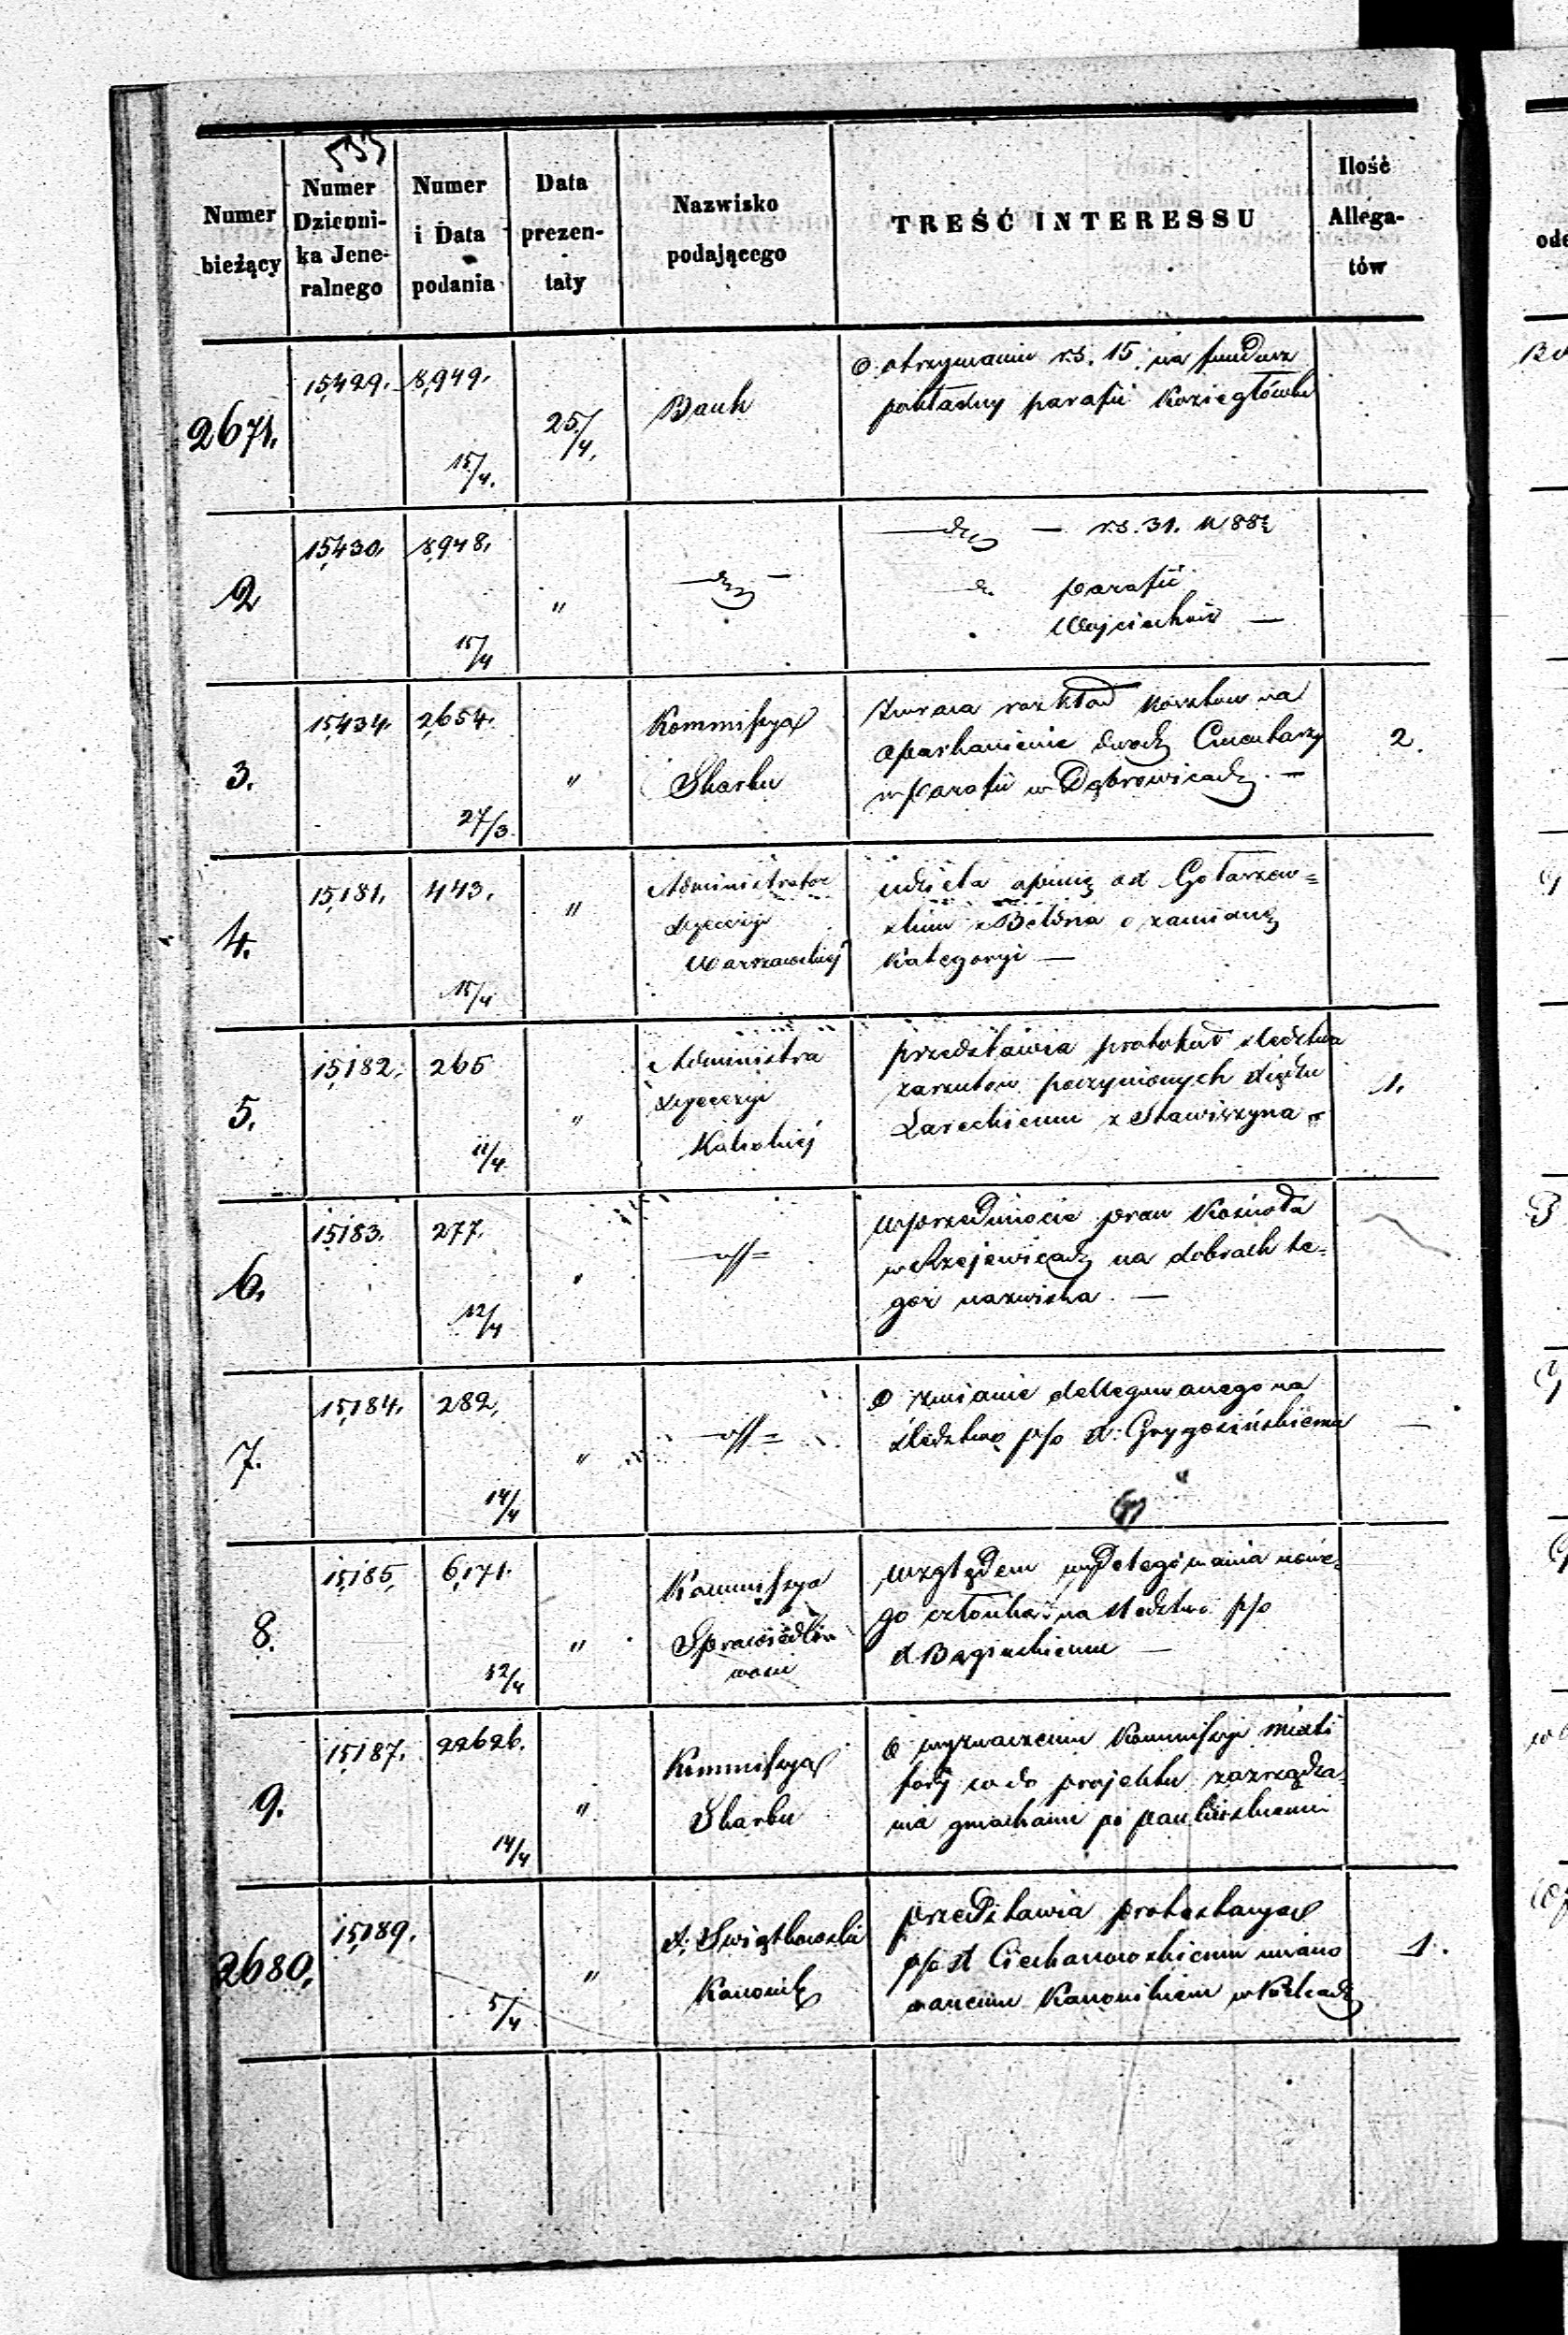 Numer bieżący | Numer Dzienni-ka Jene-ralnego | Numer i Data podania | Data prezen-taty | Nazwisko podającego | TREŚĆ INTERESSU | Ilość Allega-tów
2671. | 15,429. | 8,949. 15/4. | 25/4. | Bank | O otrzymaniu rs. 15 na fundusz
pokładny parafii Koziegłówki
2 | 15,430. | 8,948. 15/4 | " | — | — rs. 31. k 88½
parafii
Wojciechów —
3. | 15,434. | 2,654. 27/3. | " | Kommissya
Skarbu | zwraca rozkład kosztów na
oparkanienie dwóch Cmentarzy
w parafii w Dąbrowicach. — | 2.
4. | 15,181. | 443. 15/4 | " | Administrator
Dyecezyi
Warszawskiej | udziela opinię
o zamianę
Kategoryi —
5. | 15,182. | 265 11/4 | " | Administra
Dyecezyi
Kaliskiej | przedstawia protokuł śledztwa
zarzutów poczynionych księdzu
z Stawiszyna | 1.
6. | 15,183. | 277. 12/4 | " | | w przedmiocie praw Kościoła
na dobrach te=
goż nazwiska. —
7. | 15,184. | 282. 14/4 | " | | O zmianie dellegowanego na
śledztwo p/o X: Grygosińskiemu | —
8. | 15,185. | 6,171. 12/4 | " | Kommissya
Sprawiedli
wości | względem wydelegowania nowe=
go członka na śledztwo p/o
X —
9. | 15,187. | 22626. 14/4 | " | Kommissya
Skarbu | O wyznaczeniu Kommissyi
co do projektu zarządza=
nia gmachami po paulińskiemi
2680. | 15,189. | 5/4 | " | X: Świątkowski
Kanonik | przedstawia protestacyą
p/o X Ciechanowskiemu miano
wanemu Kanonikiem w Kielcach | 1.